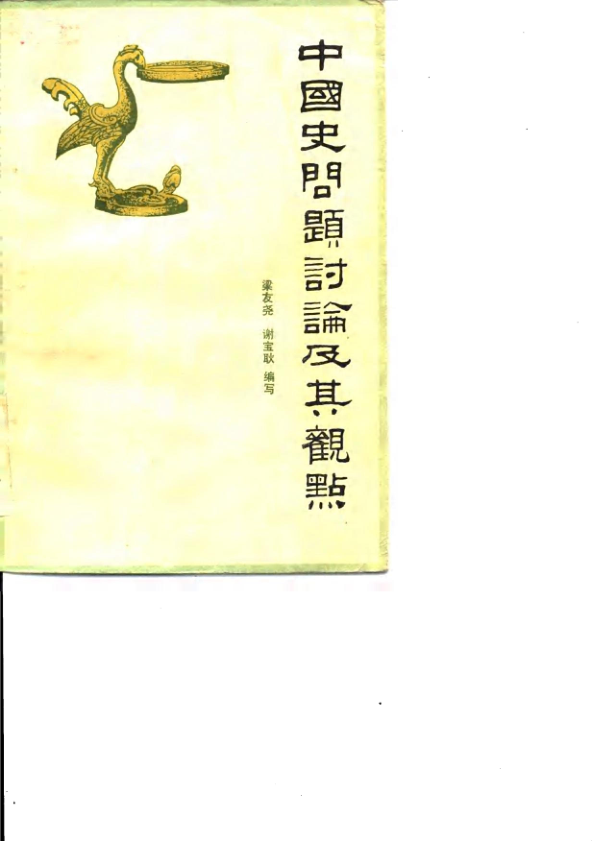 中國史問題討論及其觀點
梁友尧 谢宝耿 编写